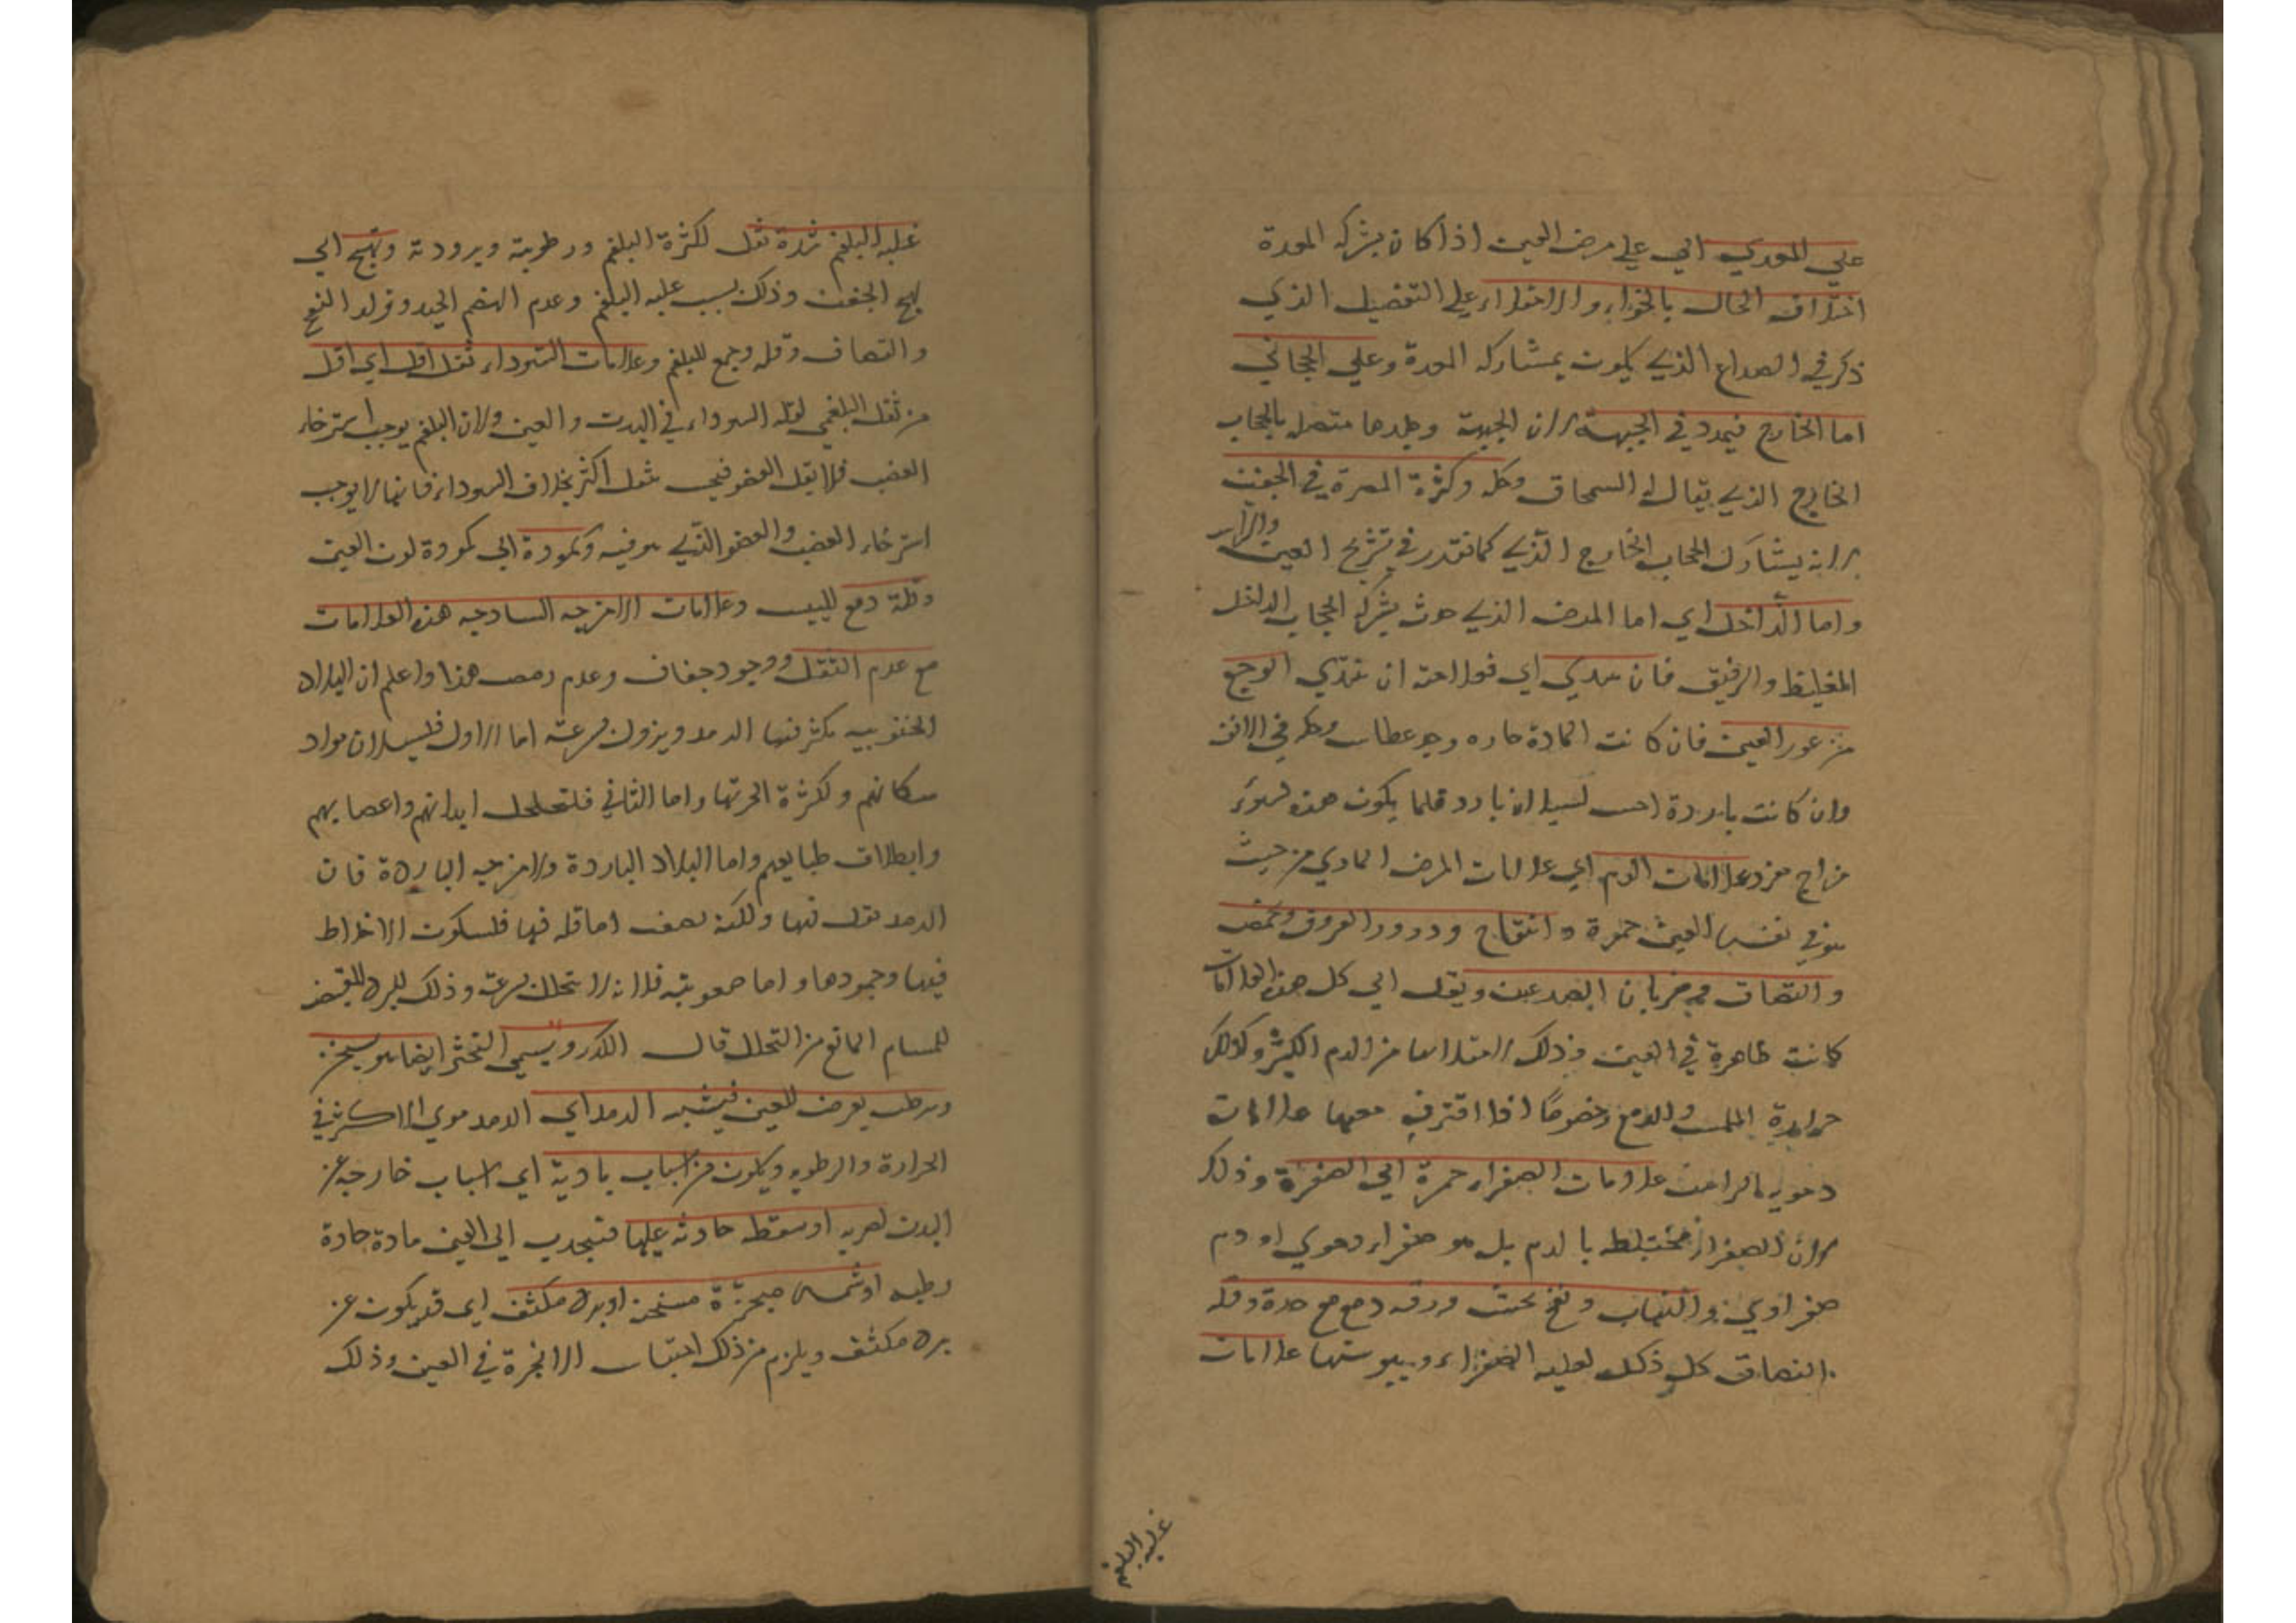 علي المعدي اي علي مرض العين اذا كان بشركه المعدة
اختلاف الحال بالخواء والامتلاء علي التفصيل الذي
ذكر في الصداع الذي يكون بمشاركه المعدة وعلي الحجابي
اما الخارج فيمدد في الجبهة لان الجبهة وجلدها متصله بالحجاب
الخارج الذي يقال له السمحاق وحكه وكثرة المضرة في الجفن
لانه يشارك الحجاب الخارج الذي كما تقدر في تشريح العين
واما الداخل اي اما المرض الذي حدث بشركه الحجاب الداخل
الغليظ والرقيق فان يبتدي اي فعلامته ان يبتدي الوجع
من غور العين فان كانت المادة حاره وجد عطاس وحكه في الانف
وان كانت باردة احس لسيلان بارد قلما يكون هذه لسوء
مزاج مفرد علامات الدم اي علامات المرض المادي من حيث
هو في نفس العين حمرة وانتفاخ ودرور العروق ورمص
والتصاق وضربان الصدغين وثقل اي كل هذه العلامات
كانت ظاهرة في العين وذلك لامتلاءها من الدم الكثير وكذلك
حرارة الملمس والدمع وخصوصًا اذا اقترن معها علامات
دمويه الراس علامات الصفراء حمرة الي الصفرة وذلك
لان الصفراء مختلطه بالدم بل هو صفراء دموي او دم
صفراوي والتهاب ونخع تحت ورقه دمع مع حدة وقله
التصاق كل ذلك لغلبه الصفراء ويبوستها علامات
غلبه البلغم
غلبه البلغم شدة ثقل لكثرة البلغم ورطوبته وبرودته وتهيج اي
تهيج الجفن وذلك بسبب غلبه البلغم وعدم الهضم الجيد وتولد النفخ
والتصاق وقله وجع للبلغم وعلامات السوداء ثقل اقل اي اقل
من ثقل البلغمي لقله السوداء في البدن والعين ولان البلغم يوجب استرخاء
العصب فلا يقل العضو فيحس ثقل اكثر بخلاف السوداء فانها لا يوجب
استرخاء العصب والعضو الذي هو فيه وكمودة اي كمودة لون العين
وقلة دمع لليبس وعلامات الامزجه السادجه هذه العلامات
مع عدم الثقل ووجود جفاف وعدم رمص هذا واعلم ان البلاد
الجنوبيه يكثر فيها الرمد ويزول بسرعته اما الاول فلسيلان مواد
سكانهم ولكثرة ابخرتها واما الثاني فلتخلخل ابدانهم واعصابهم
وانطلاق طبايعهم واما البلاد الباردة والامزجه الباردة فان
الرمد يقل فيها ولكنه يصعب اما قله فيها فلسكون الاخلاط
فيها وجمودها واما صعوبته فلانه لا يتحلل بسرعه وذلك للبرد المقبض
للمسام المانع من التحلل قال التكدر ويسمي التخثر ايضا هو سخن
ورطب يعرض للعين فيشبه الرمد اي الرمد موي الاكثر في
الحرارة والرطوبه ويكون من اسباب بادية اي اسباب خارجه عن
البدن لضربه او سقطه حادثه عليها فتنجدب الي العين مادة حادة
رطبه او شمس مبخرة مسخنه او برد مكثف اي قد يكون عن
برد مكثف ويلزم من ذلك احتباس الابخرة في العين وذلك